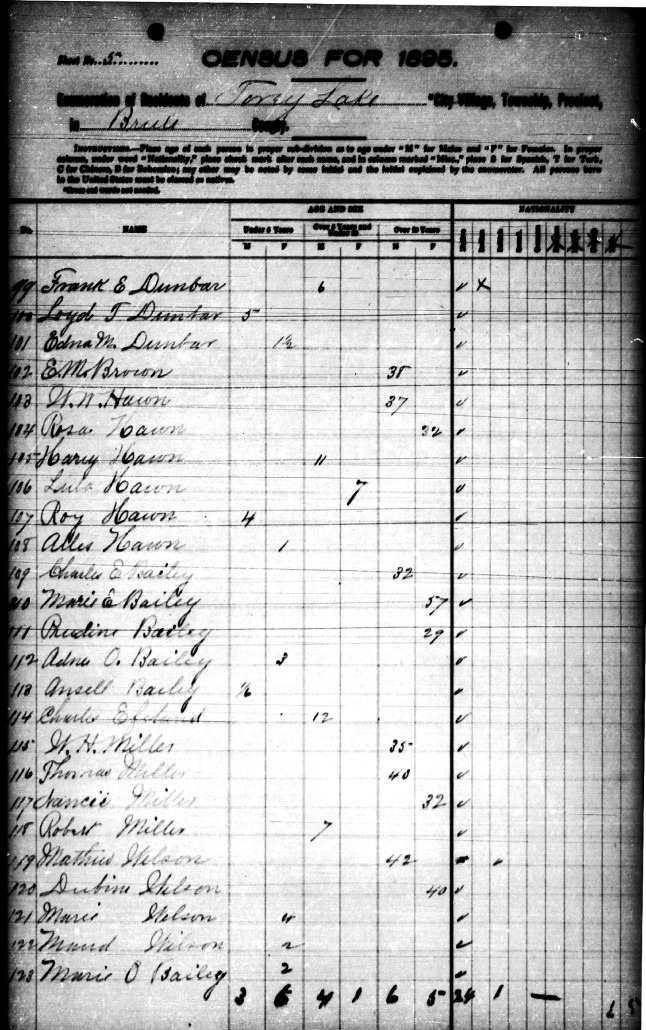 Sheet No. 5
CENSUS FOR 1895.
Enumeration of Residents of Torey Lake *City, Village, Township, Precinct,
in Brule County.
INSTRUCTIONS.—Place age of each person in proper sub-division as to age under "M" for Males and "F" for Females. In proper
column, under word "Nationality," place check mark after each name, and in column marked "Misc." place S for Spanish, T for Turk,
C for Chinese, B for Bohemian; any other may be noted by some initial and the initial explained by the enumerator. All persons born
in the United States must be classed as natives.
*Cross out words not needed.
AGE AND SEX NATIONALITY
No. NAME Under 5 Years Over 5 Years and Under 20 Over 20 Years
M F M F M F
99 Frank E Dunbar 6 ✓ x
100 Loyd T Dunbar 5 ✓
101 Edna M. Dunbar 1½ ✓
102 E.M. Brown 38 ✓
103 W. N. Hawn 37 ✓
104 Rosa Hawn 32 ✓
105 Harey Hawn 11 ✓
106 Lula Hawn 7 ✓
107 Roy Hawn 4 ✓
108 Alles Hawn 1 ✓
109 Charles E Bailey 32 ✓
110 Marie E Bailey 57 ✓
111 Bailey 29 ✓
112 Adna O. Bailey 3 ✓
113 Ansell Bailey ✓
114 Charles 12 ✓
115 W. H. Miller 35 ✓
116 Thomas Miller 40 ✓
117 Nancie Miller 32 ✓
118 Robert Miller 7 ✓
119 Mathew Wilson 42
120 Wilson 40 ✓
121 Marie Wilson 4 ✓
122 Maud Wilson 2 ✓
123 Marie O Bailey 2 ✓
3 6 4 1 6 5 24 1 —